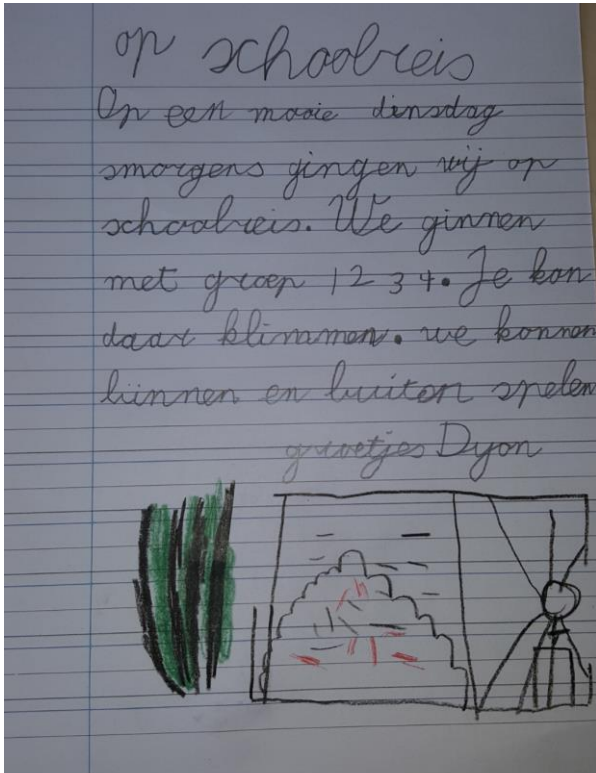 op schoolreis
Op een mooie dinsdag
smorgens gingen wij op
schoolreis. We ginnen
met groep 1 2 3 4. Je kon
daar klimmen. we konnen
binnen en buiton spelen
groetjes Dyon